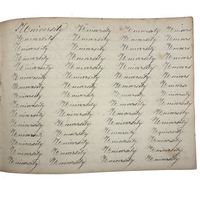 University University University Univers
University University University Univers
University University University Univers
University University University Univers
University University University Univers
University University University Univers
University University University Univers
University University University Univers
University University University Univers
University University University University
University University University University
University University University University
University University University University
University University University University
University University University University